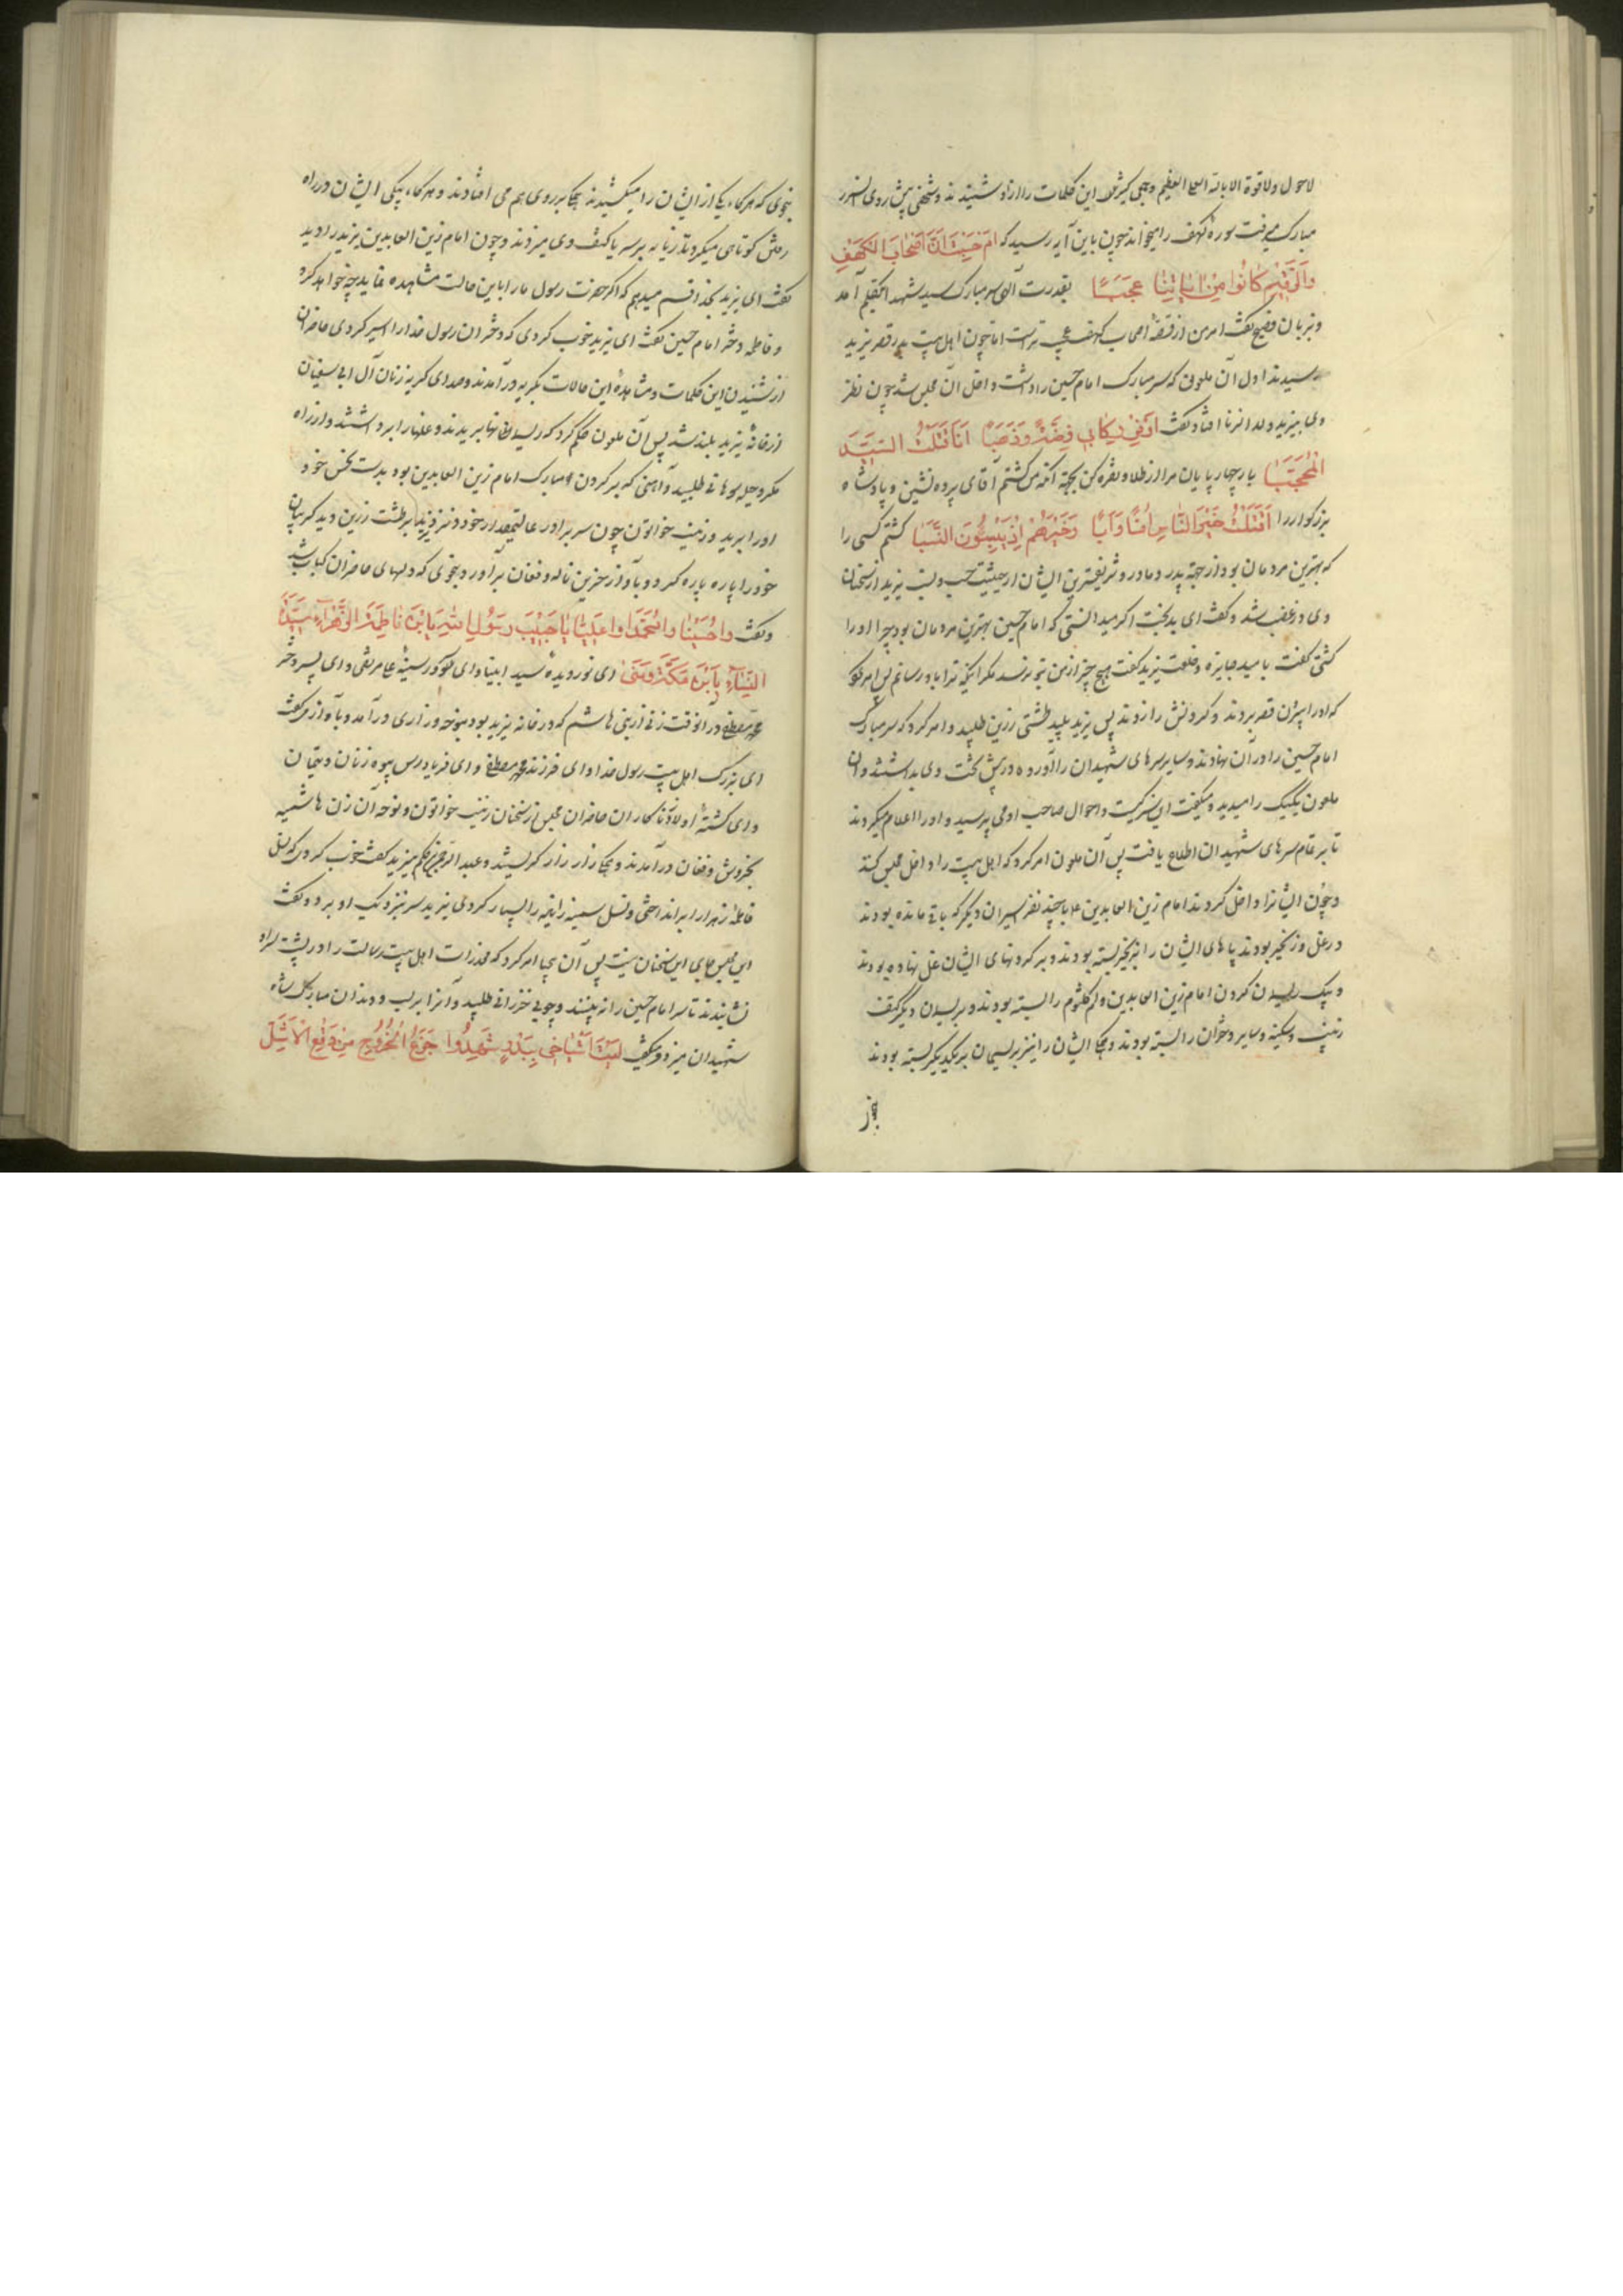 لاحول ولاقوة الا بالله العلی العظیم وجمعی کثیر این کلمات را از او شنیدند وشخصی پیش روی آن سر
مبارک میرفت سورهٔ کهف را میخواند چون باین آیه رسید که اَمْ حَسِبْتَ اَنَّ اَصْحَابَ الْکَهْفِ
وَالرَّقِیمِ کَانُوا مِنْ اٰیَاتِنَا عَجَبًا بقدرت الهی سر مبارک سید شهدا بتکلم آمد
وبزبان فصیح گفت امر من از قصهٔ اصحاب کهف عجیب تر است اما چون اهل بیت بدر قصر یزید
رسیدند اول آن ملعونی که سر مبارک امام حسین را داشت داخل آن مجلس شد چون نظر
وی بیزید ولد الزنا افتاد گفت اَوْقِرْ رِکَابِی فِضَّةً وَذَهَبًا اَنَا قَتَلْتُ السَّیِّدَ
الْمُحَجَّبَا بار چهارپایان مرا از طلا ونقره کن بجهة آنکه من کشتم آقای پرده نشین وپادشاه
بزرکوار را قَتَلْتُ خَیْرَ النَّاسِ اُمًّا وَاَبًا وَخَیْرَهُمْ اِذْ یَنْسِبُونَ النَّسَبَا کشتم کسی را
که بهترین مردمان بود از جهة پدر ومادر وشریفترین ایشان از حیثیت حسب ونسب یزید از سخنان
وی در غضب شد وگفت ای بدبخت اکر میدانستی که امام حسین بهترین مردمان بود چرا او را
کشتی گفت بامید جایزه وخلعت یزید گفت هیچ چیز از من بتو نرسد مکر آنکه ترا باو رسانم پس امر کرد
که او را بیرون قصر بردند وکردنش را زدند پس یزید پلید طشتی زرین طلبید وامر کرد که سر مبارک
امام حسین را در آن نهادند وسایر سرهای شهیدان را آورده در پیش تخت وی بداشتند وآن
ملعون یکیک را میدید ومیگفت این سر کیست واحوال صاحب او می پرسید و او را اعلام میکردند
تا بر تمام سرهای شهیدان اطلاع یافت پس آن ملعون امر کرد که اهل بیت را داخل مجلس کنند
وچون ایشانرا داخل کردند امام زین العابدین با چند نفر اسیران دیکر که باقی مانده بودند
در غل وزنجیر بودند پاهای ایشان را بزنجیر بسته بودند وبر کردنهای ایشان غل نهاده بودند
وبیک ریسمان کردن امام زین العابدین وام کلثوم را بسته بودند وبریسمان دیکر کتف
زینب وسکینه وسایر دختران را بسته بودند وهمکی ایشان را نیز بریسمان بریکدیکر بسته بودند
بنحوی که هرکاه یکی از ایشان را میکشیدند همکی بر روی هم می افتادند وهرکاه یکی ایشان در راه
رفتن کوتاهی میکردند تازیانه بر سر یا کتف وی میزدند وچون امام زین العابدین یزید را دید
گفت ای یزید بخدا قسم میدهم که اکر حضرت رسول ما را باین حالت مشاهده نماید چه خواهد کرد
وفاطمه دختر امام حسین گفت ای یزید خوب کردی که دختران رسول خدا را اسیر کردی حاضران
از شنیدن این کلمات ومشاهدهٔ این حالات بگریه در آمدند وصدای کریه زنان آل ابی سفیان
از خانهٔ یزید بلند شد پس آن ملعون حکم کرد که ریسمانها بریدند وغلها را برداشتند واز راه
مکر وحیله سوهانی طلبید وآهنی که بر کردن مبارک امام زین العابدین بود بدست نحس خود
او را برید وزینب خواتون چون سر برادر عالیمقدار خود در نزد یزید بر طشت زرین دید کریبان
خود را پاره پاره کرد وبآواز حزین ناله وفغان برآورد بنحوی که دلهای حاضران کباب شد
وگفت واحُسَیْنَا وامُحَمَّدَا واعَلِیَّا یَا حَبِیبَ رَسُولِ اللّٰهِ یَا بْنَ فَاطِمَةَ الزَّهْرَاءِ سَیِّدَةِ
النِّسَاءِ یَا بْنَ مَکَّةَ وَمِنَی ای نور دیدهٔ سید انبیا وای سرور سینهٔ علی مرتضی وای پسر دختر
محمد مصطفی در آنوقت زنی از بنی هاشم که در خانه یزید بود بنوحه وزاری در آمد وبآواز میگفت
ای بزرک اهل بیت رسول خدا وای فرزند محمد مصطفی وای فریادرس بیوه زنان ویتیمان
وای کشتهٔ اولاد زناکاران حاضران مجلس از سخنان زینب خواتون ونوحه آن زن هاشمیه
بخروش وفغان در آمدند وهمکی زار زار کریستند وعبدالرحمن بن حکم بیزید گفت خوب کردی که نسل
فاطمهٔ زهرا را برانداختی ونسل سمیه زانیه را بسیار کردی یزید سر بنزدیک او برد وگفت
این مجلس جای این سخنان نیست پس آن بیحیا امر کرد که مخدرات اهل بیت رسالت را در پشت سر او
نشانیدند تا سر امام حسین را نه بینند وچوبی خیزرانی طلبید وآنرا بر لب ودندان مبارک شاه
شهیدان میزد ومیگفت لَیْتَ اَشْیَاخِی بِبَدْرٍ شَهِدُوا جَزَعَ الْخَزْرَجِ مِنْ وَقْعِ الْاَسَلْ